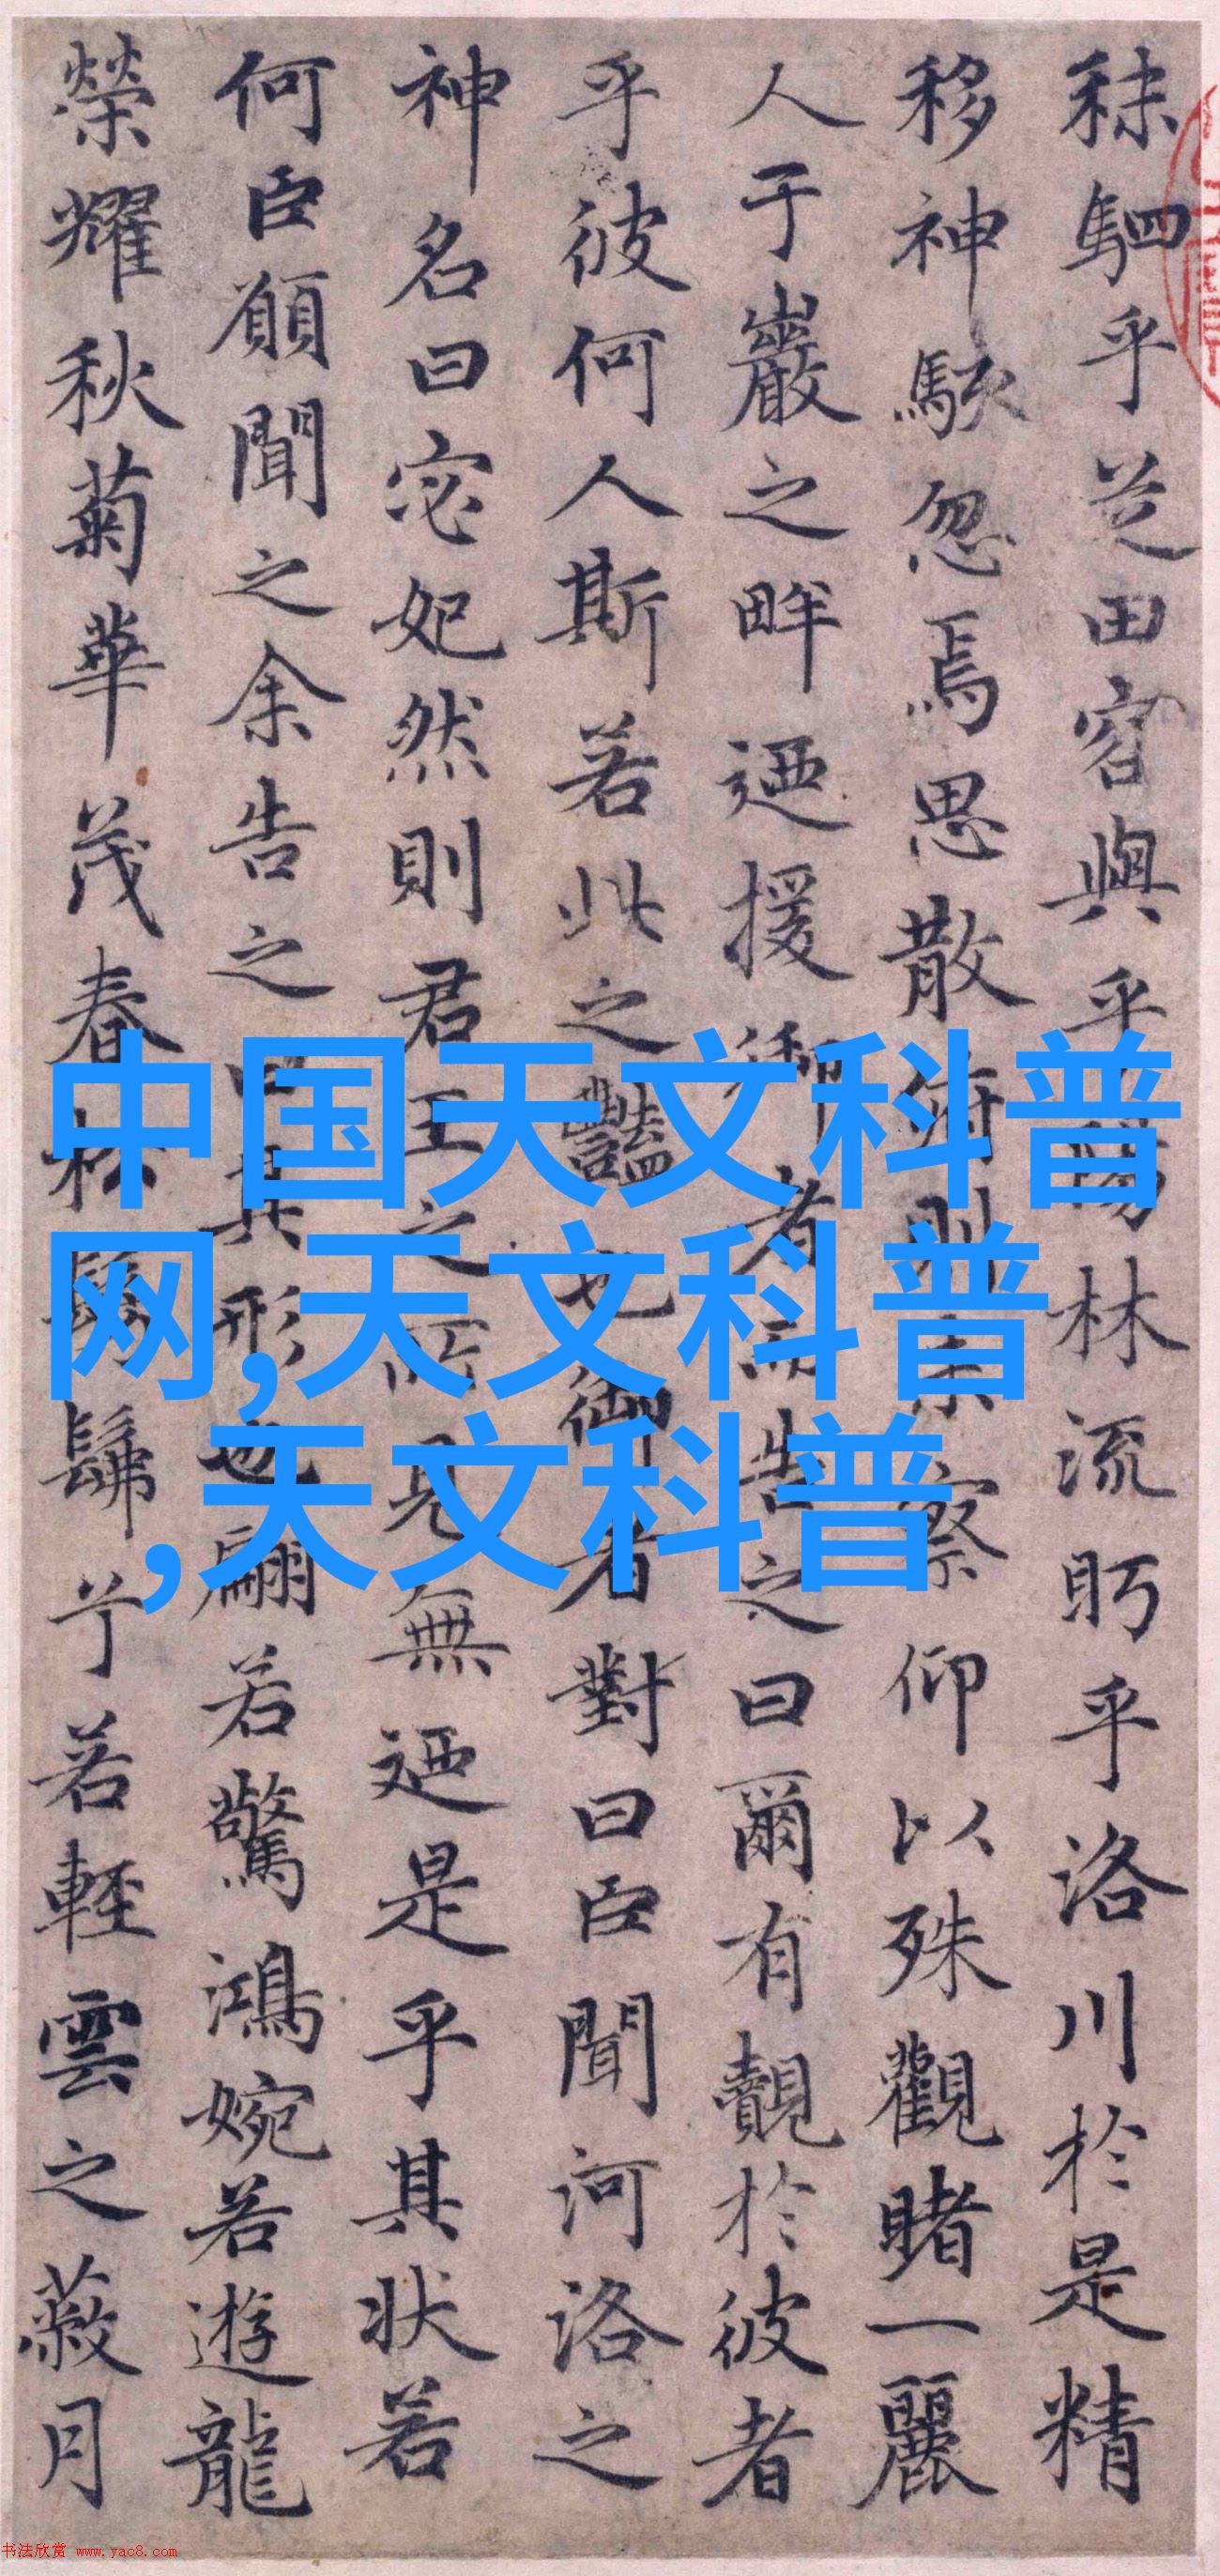 秣駟乎芝田容與乎陽林流眄乎洛川於是精
移神駭忽焉思散俯則未察仰以殊觀睹一麗
人于巖之畔迺援御者而告之曰爾有覿於彼者
乎彼何人斯若此之豔也御者對曰臣聞河洛之
神名曰宓妃然則君王之所見無迺是乎其狀若
何臣願聞之余告之曰其形也翩若驚鴻婉若遊龍
榮耀秋菊華茂春松髣髴兮若輕雲之蔽月
中国天文科普
网,天文科普
,天文科普
书法欣赏 www.yac8.com